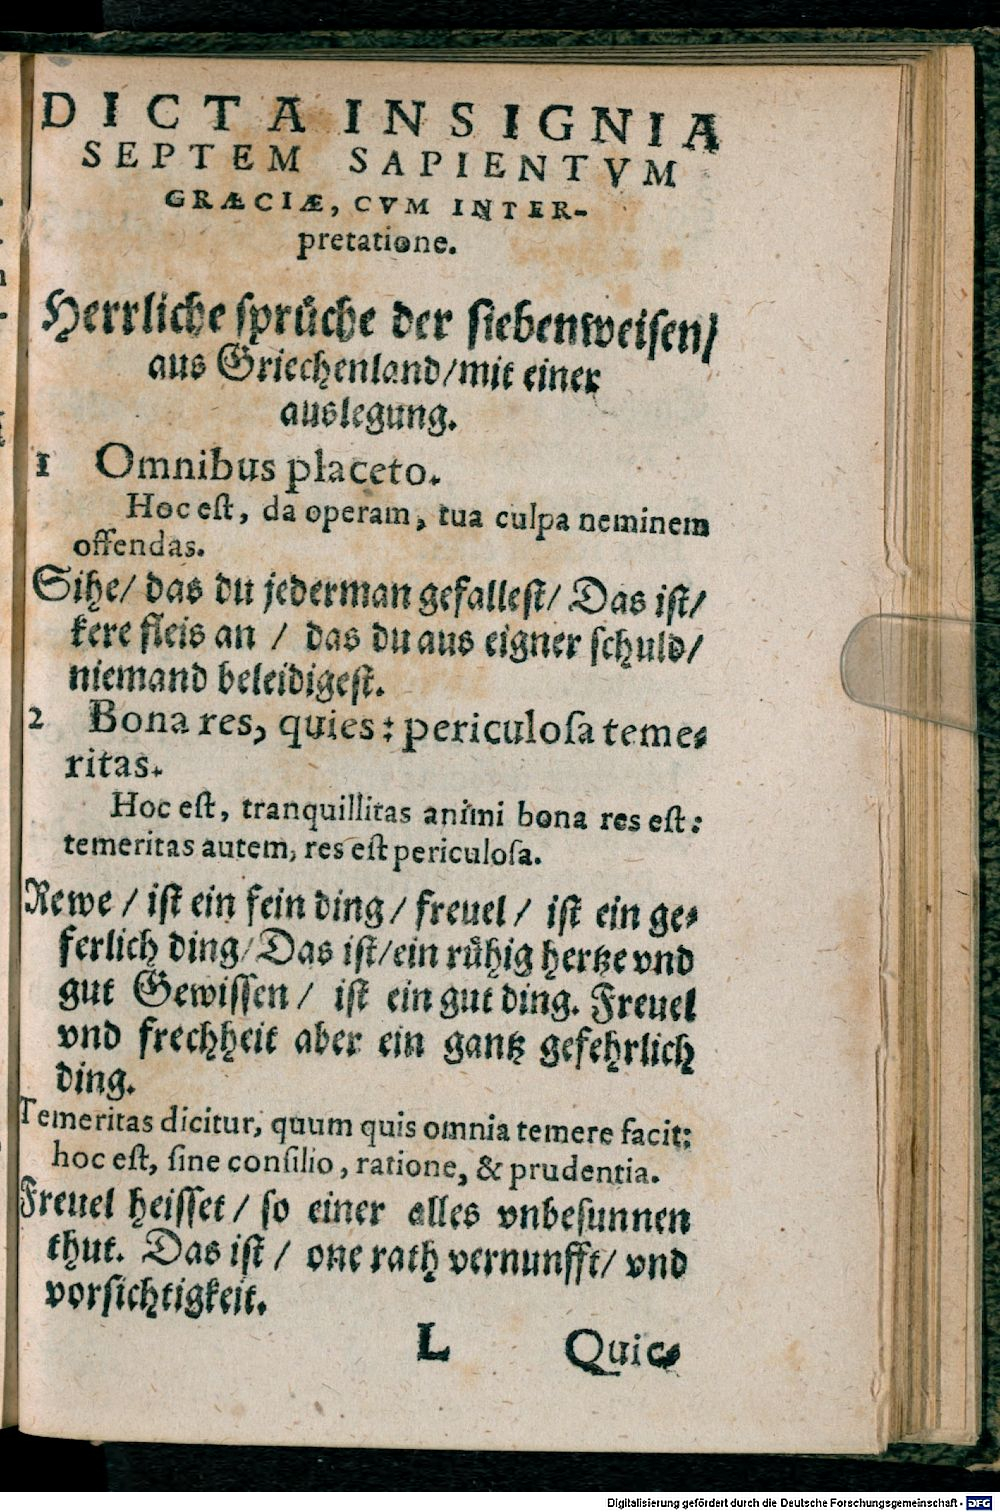 DICTA INSIGNIA
SEPTEM SAPIENTVM
GRÆCIÆ, CVM INTER-
pretatione.
Herrliche sprůche der siebenweisen/
aus Griechenland/mit einer
auslegung.
1 Omnibus placeto.
Hoc est, da operam, tua culpa neminem
offendas.
Sihe/ das du jederman gefallest/ Das ist/
kere fleis an / das du aus eigner schuld/
niemand beleidigest.
2 Bona res, quies: periculosa teme-
ritas.
Hoc est, tranquillitas animi bona res est:
temeritas autem, res est periculosa.
Rewe / ist ein fein ding/ freuel / ist ein ge-
ferlich ding/Das ist/ein růhig hertze vnd
gut Gewissen / ist ein gut ding. Freuel
vnd frechheit aber ein gantz gefehrlich
ding.
Temeritas dicitur, quum quis omnia temere facit:
hoc est, sine consilio, ratione, & prudentia.
Freuel heisset / so einer alles vnbesunnen
thut. Das ist / one rath vernunfft/ vnd
vorsichtigkeit.
L Quic-
Digitalisierung gefördert durch die Deutsche Forschungsgemeinschaft - DFG